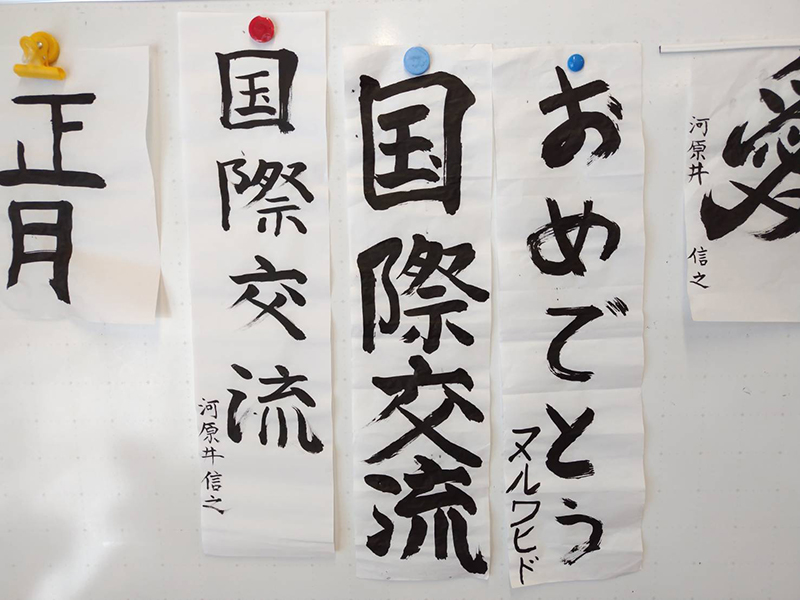 正月
国際交流
河原井信之
国際交流
おめでとう
ヌルワヒド
愛
河原井 信之